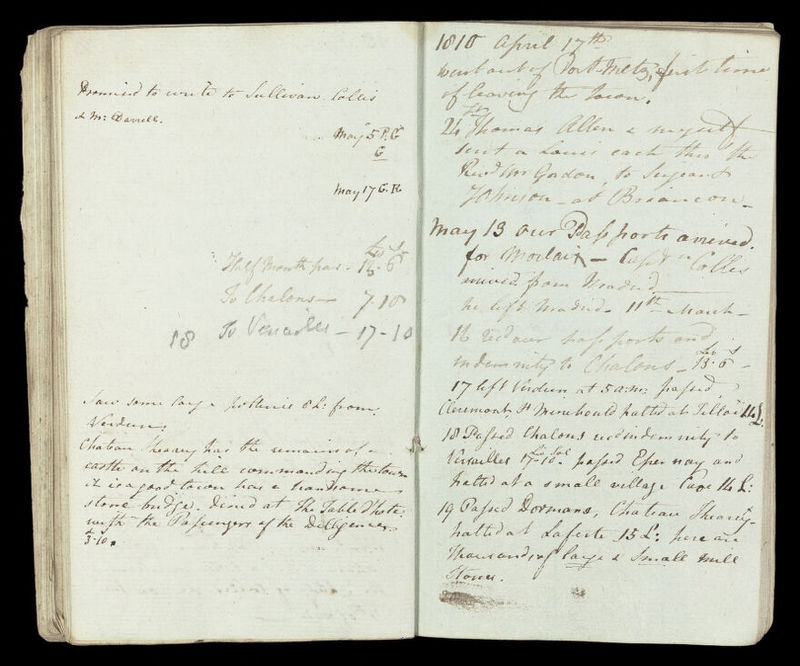 Promised to write to Sullivan. Collis
& Mr Darrell.
May 5 P. G
G
May 17 G. R
Half Month pay - 18. 6
To Chalons - 7-10
18 To Versailles - 17-10
Saw some large potteries 8 L: from
Verdun,
Chateau Thearey has the remains of a
castle on the hill commanding the town
it is a good town has a handsome
stone bridge. Dined at the Table d'hote
with the Passengers of the Dilligences
3-10.
1810 April 17th
went out of Port Metz, first time
of leaving the town.
24 Thomas Allen & myself
sent a Louis each thro the
Revd Mr Gordon, to Sergeant
Johnson - at Briancon -
May 13 Our Passports arrived.
for Morlaix - Captn Colles
arrived from Madrid
he left Madrid. 11th March -
16 recd our passports and
indemnity to Chalons - 13. 6 -
17 left Verdun at 5 a:m: passed
Clermont, St Minehould halted at Tilloi 14 L
18 Passed Chalons recd indemnity to
Versailles 17-10. passed Epernay and
halted at a small village 14 L:
19 Passed Dormans, Chateau Thearey
halted at Laferte 15 L: here are
thousands of large & small mill
Stones.